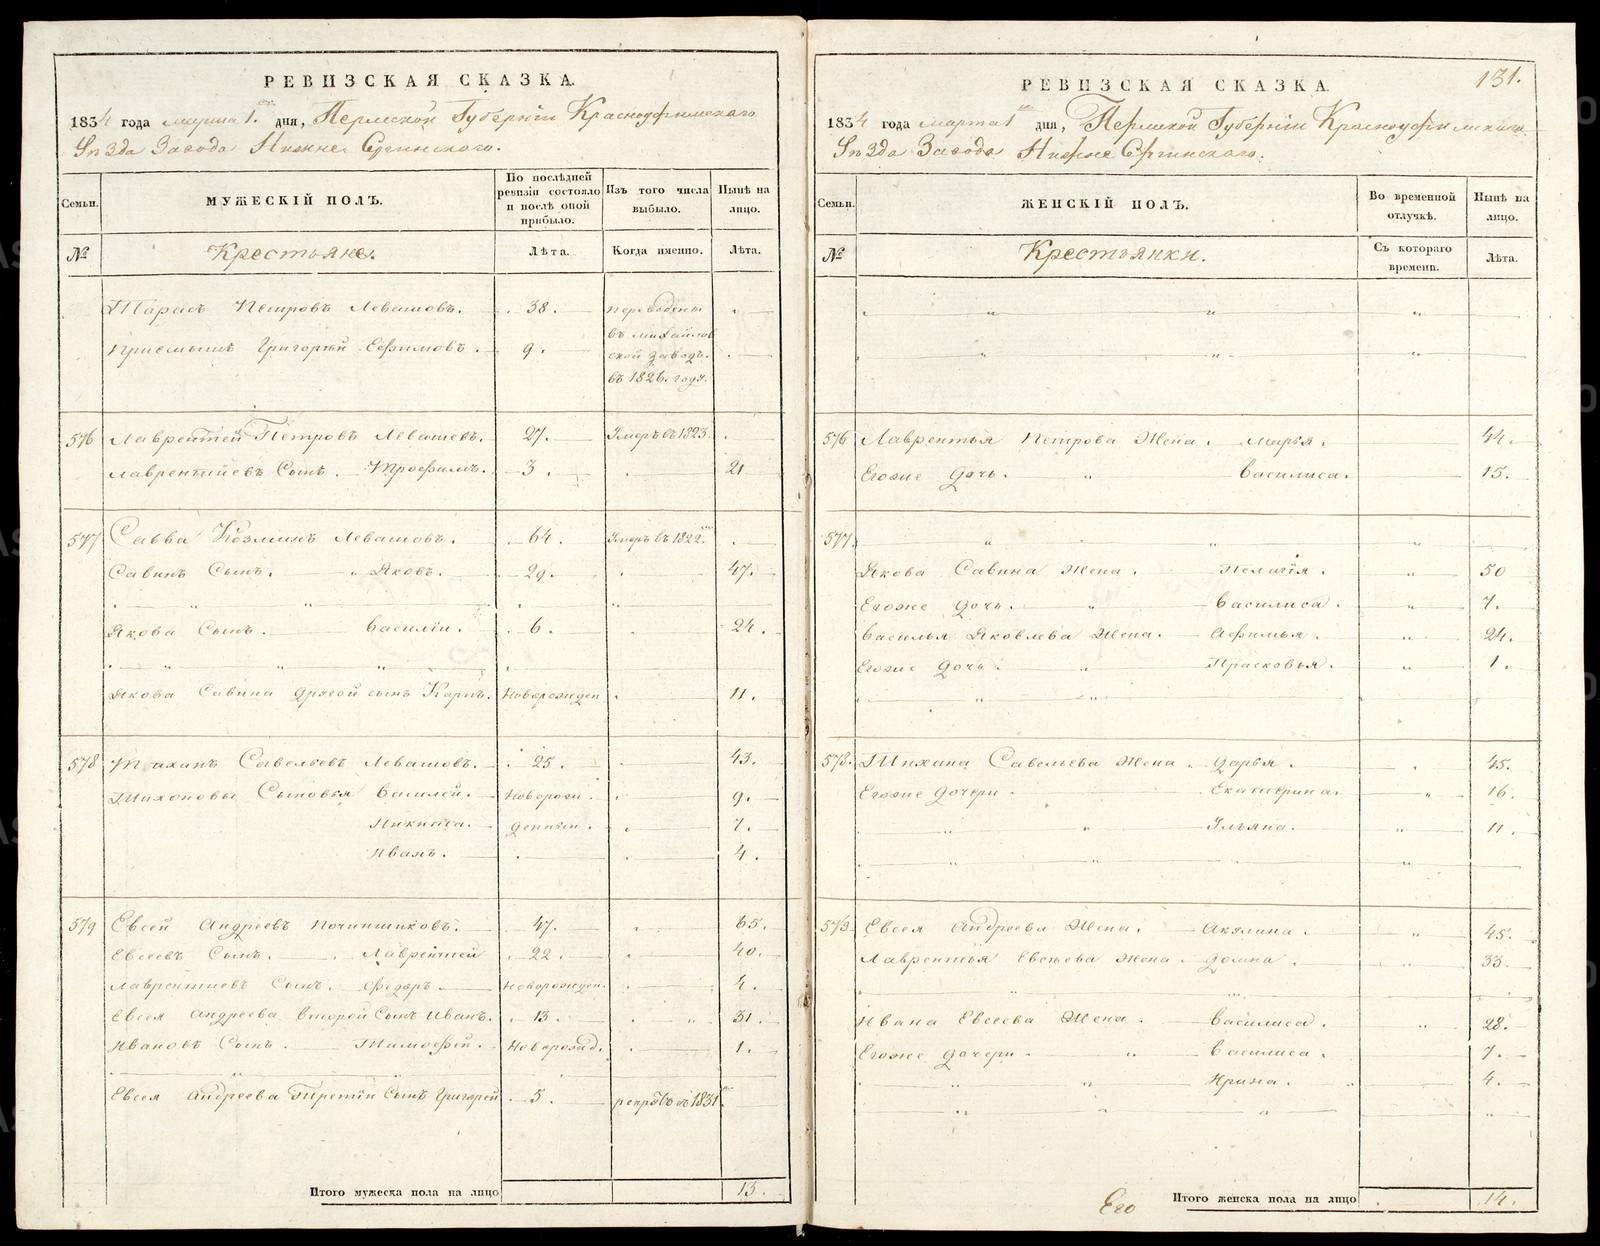 РЕВИЗСКАЯ СКАЗКА.
1834 года марта 1. дня, Пермской Губерніи Красноуфимскаго
Уѣзда Завода Нижне Сергинскаго.
Семьи.
МУЖЕСКІЙ ПОЛЪ.
По послѣдней ревизіи состояло и послѣ оной прибыло.
Изъ того числа выбыло.
Нынѣ на лицо.
№
Крестьяне.
Лѣта.
Когда именно.
Лѣта.
Тарасъ Петровъ Левашовъ. 38. переведены
въ Михайлов
Пріемышъ Григорьй Ефимовъ. 9. ской заводъ.
въ 1826. году.
576 Лаврентей Петровъ Левашевъ. 27. Умеръ въ 1823.
Лаврентьевъ Сынъ. Трофимъ. 3. 21
577 Савва Козминъ Левашовъ. 64. Умеръ въ 1822.
Савинъ Сынъ. Яковъ. 29. 47.
Якова Сынъ. Василіи. 6. 24.
Якова Савина другой сынъ Карпъ. Новорожден 11.
578 Тиханъ Савельевъ Левашовъ. 25. 43.
Тихоновы Сыновья Василей. Новорож. 9.
Никита. денныи. 7.
Иванъ. 4.
579 Евсей Андреевъ Починщиковъ. 47. 65.
Евсеевъ Сынъ. Лаврентей 22. 40.
Лаврентиевъ Сынъ. Федоръ. Новорожден. 4.
Евсея Андреева второй Сынъ Иванъ. 13. 31.
Ивановъ Сынъ. Тимофей. Новорожд. 1.
Евсея Андреева Третій Сынъ Григорей 5. рекрутъ въ 1831
Итого мужеска пола на лицо 13.
131.
РЕВИЗСКАЯ СКАЗКА.
1834 года марта 1 дня, Пермской Губерніи Красноуфимскаго
Уѣзда Завода Нижне Сергинскаго.
Семьи.
ЖЕНСКІЙ ПОЛЪ.
Во временной отлучкѣ.
Нынѣ на лицо.
№
Крестьянки.
Съ котораго времени.
Лѣта.
576 Лаврентья Петрова Жена. Марья. 44.
Егоже дочь. Василиса. 15.
577.
Якова Савина Жена. Пелагія. 50
Егоже дочь. Василиса. 7.
Василья Яковлева Жена. Афимья. 24.
Егоже дочь. Прасковья. 1.
578. Тихана Савельева Жена. Дарья. 45.
Егоже дочери Екатерина. 16.
Ульяна. 11.
579 Евсея Андреева Жена. Акулина. 45.
Лаврентья Евсѣева Жена. Домна. 33.
Ивана Евсеева Жена. Василиса. 28.
Егоже дочери Василиса. 7.
Ирина. 4.
Итого женска пола на лицо 14.
Его